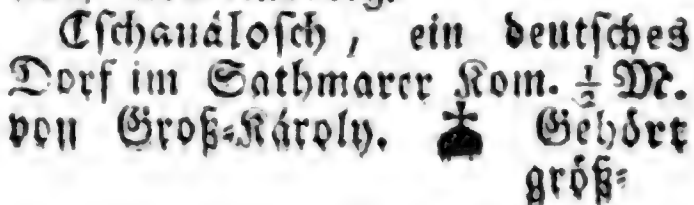 Tschanálosch, ein deutsches
Dorf im Sathmarer Kom. ½ M.
von Groß-Károly. Gehört
größ-